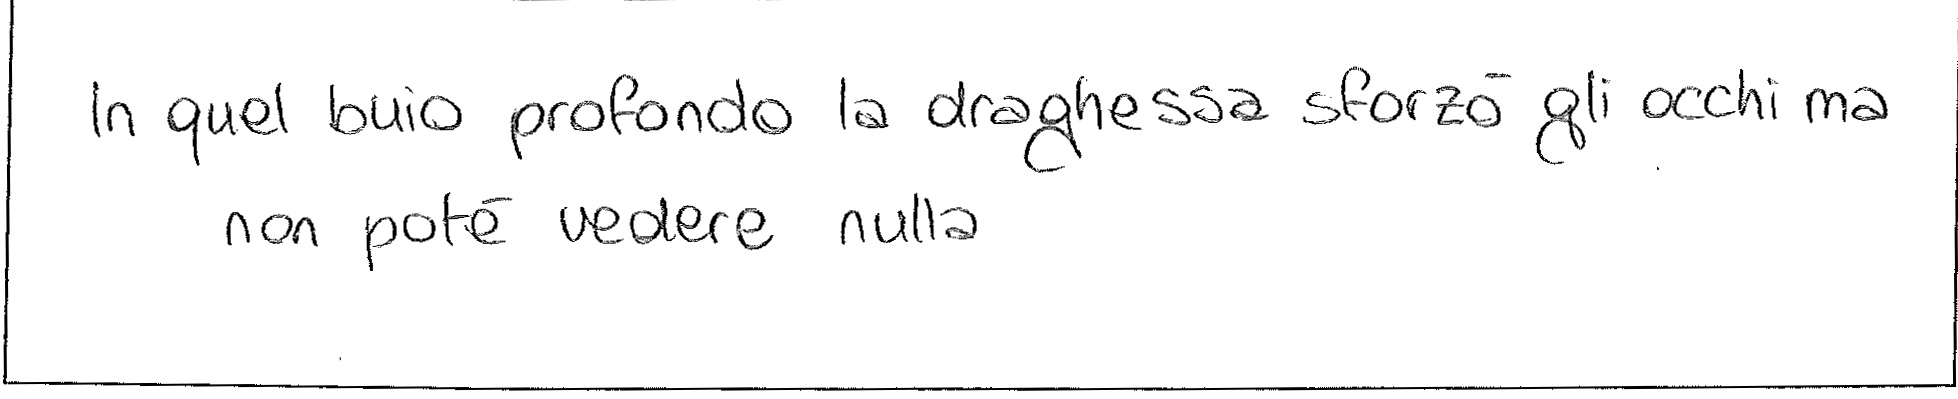 In quel buio profondo la draghessa sforzō gli occhi ma
non potē vedere nulla